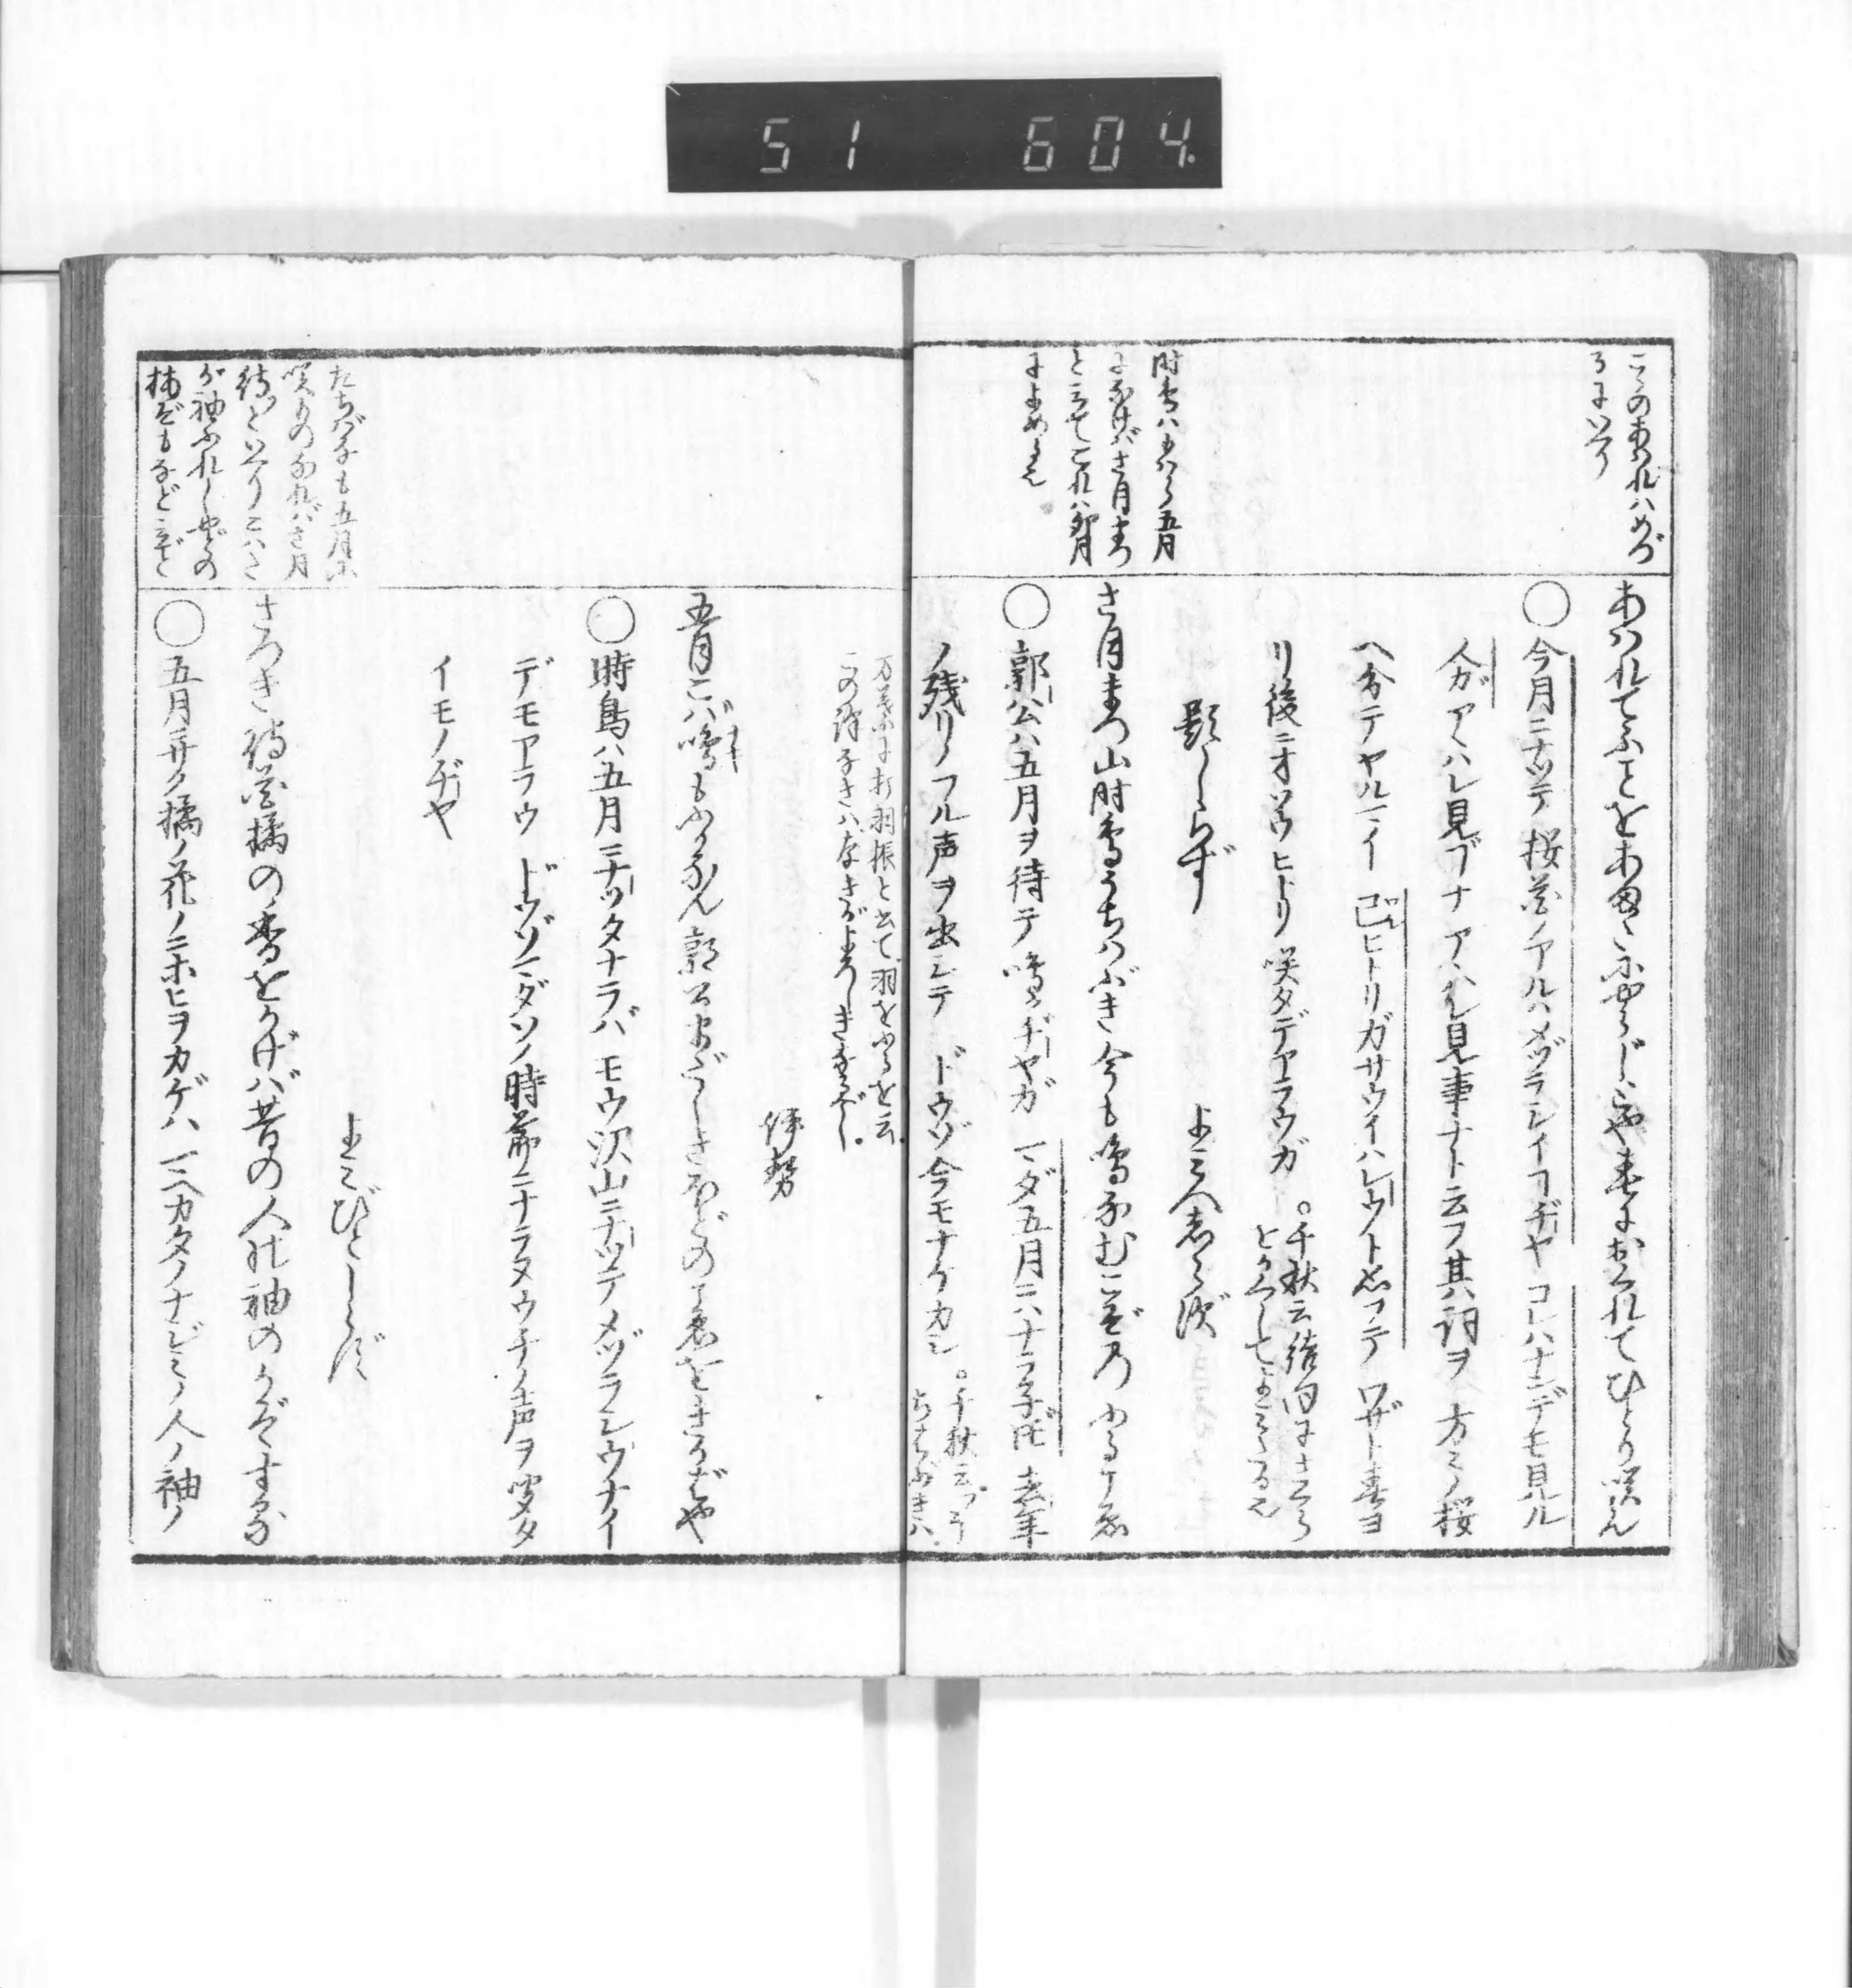 51 604
こゝのあはれハめづ
るにいへり
あはれてふことをあまたにやらじとや春におくれてひとり咲らん
○今月ニナツテ桜花ノアルハメヅラシイコトヂヤ コレハナンデモ見ル
人ガアヽハレ見ゴナ アヽハレ見事ナト云フ其詞ヲ 方々ノ桜
ヘ分テヤルマイ 己ヒトリガサウイハレウト思フテ ワザト春ヨ
リ後ニオソウヒトリ咲タデアラウガ
○千秋云結句によりてえらるゝ
時鳥ハもはら五月
になけばさ月まつ
と云てこれハ卯月
によめる也
題しらず よみ人志らず
さ月まつ山時鳥うちはぶき今も鳴なむこぞのふるこゑ
○郭公ハ五月ヲ待テ鳴クヂヤガ マダ五月ニハナラネドモ 去年
ノ残リノフル声ヲ出シテ ドウゾ今モナケカシ
○千秋云うちはぶきハ
万葉に打羽振と書て羽をふるを云
伊勢
五月こば鳴もふりなん郭公まだしきほどのこゑをきかばや
○時鳥ハ五月ニナツタナラバ モウ沢山ニナツテメヅラシウナイ
デモアラウ ドウゾマダソノ時節ニナラヌウチノ声ヲ聞タ
イモノヂヤ
よみびとしらず
たちばなも五月に
咲ものなればさ月
待といへりこハさ
が袖ふれしやどの
梅ぞもなど云と
さつき待花橘の香をかげば昔の人の袖のかぞする
○五月ニサク橘ノ花ノニホヒヲカゲハ マヘカタノナジミノ人ノ袖ノ